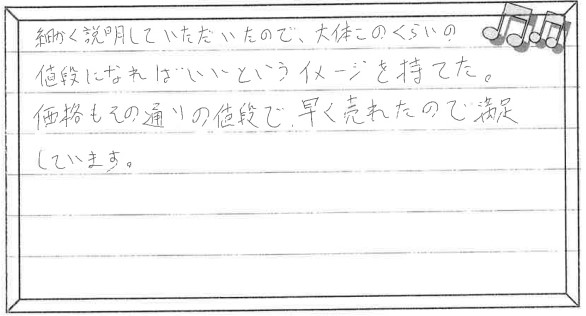 細かく説明していただいたので、大体このくらいの
値段になればいいというイメージを持てた。
価格もその通りの値段で、早く売れたので満足
しています。